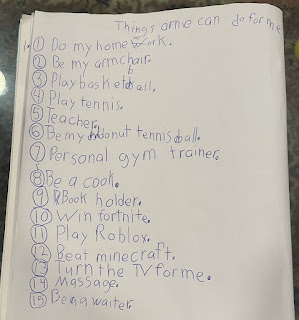 Things arnie can do for me
① Do my home work.
② Be my armchair.
③ Play basketball.
④ Play tennis.
⑤ Teacher.
⑥ Be my donut tennis ball.
⑦ Personal gym trainer.
⑧ Be a cook.
⑨ Book holder.
⑩ Win fortnite.
⑪ Play Roblox.
⑫ Beat minecraft.
⑬ Turn the TV for me.
⑭ Massage.
⑮ Be a waiter.